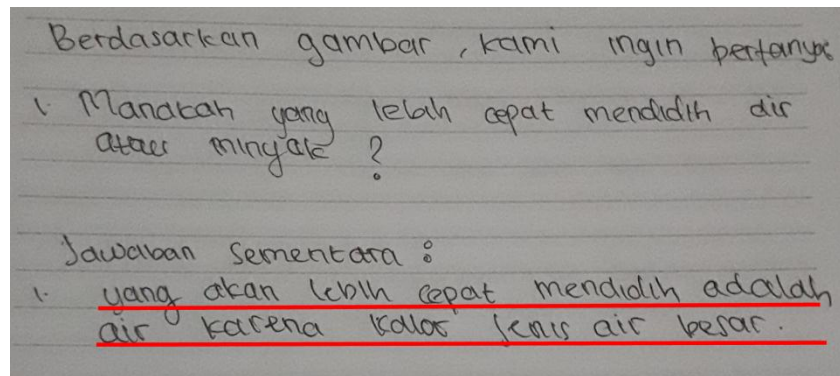 Berdasarkan gambar, kami ingin bertanya
1. Manakah yang lebih cepat mendidih air
atau minyak ?
Jawaban Sementara :
1. yang akan lebih cepat mendidih adalah
air karena kalor jenis air besar.